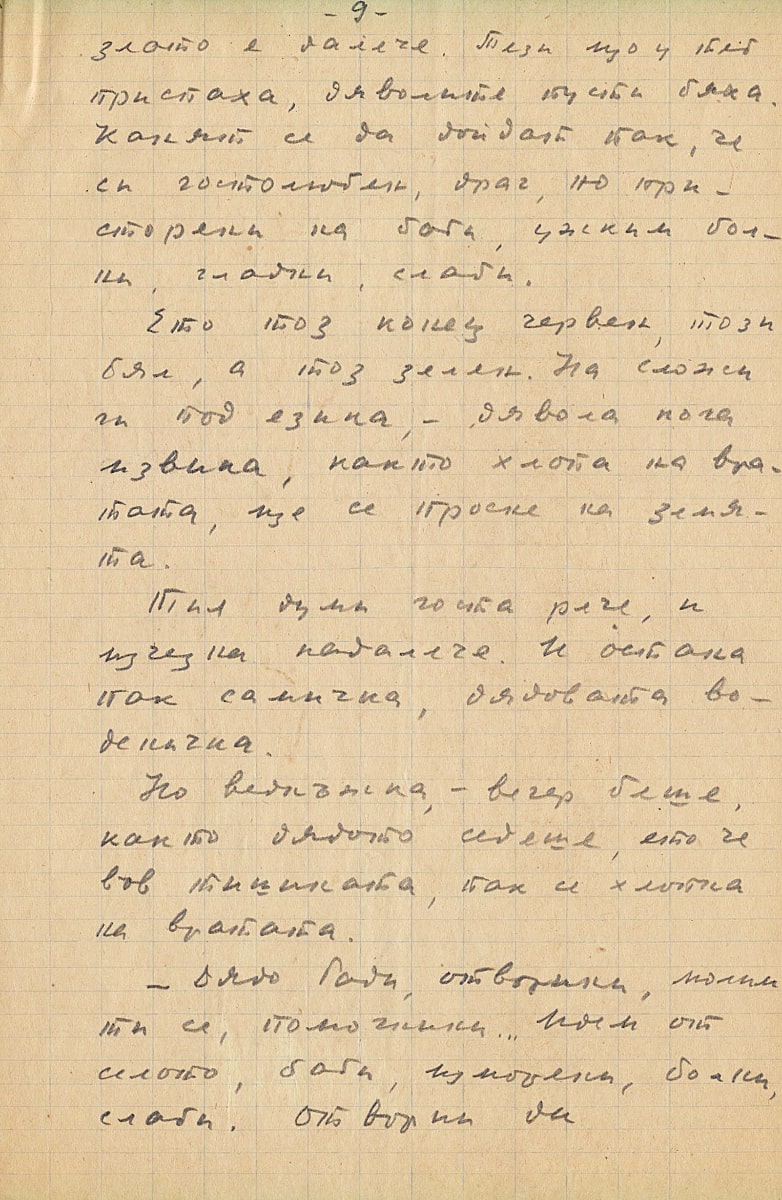 - 9 -
злото е далече. Тези що у теб
пристаха, дяволите пусти бяха.
Канят се да дойдат пак, че
си гостолюбен, драг, но при-
сторени на баби, ужким бол-
ни, гладни, слаби.
Ето тоз конец червен, този
бял, а тоз зелен. На сложи
ги под езика, – дявола кога
извика, както хлопа на вра-
тата, ще се просне на земя-
та.
Тия думи госта рече, и
изчезна надалече. И остана
пак самичка, дядовата во-
деничка.
Но веднъжка, – вечер беше,
както дядото седеше, ето че
вов тишината, пак се хлопна
на вратата.
– Дядо Гади, отворини, молим
ти се, помогнини... Идем от
селото, баби, изморени, болни,
слаби. Отвори ди